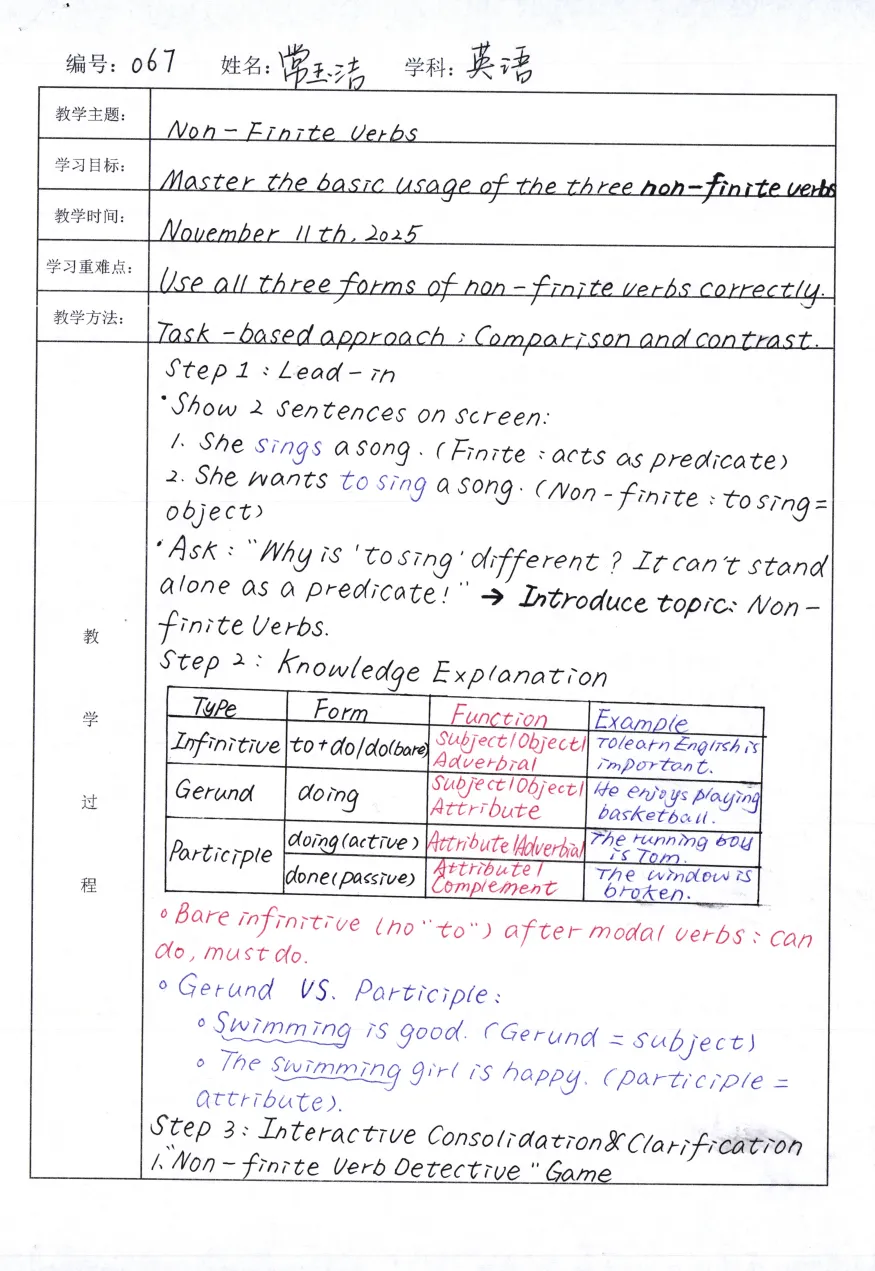 编号: 067 姓名: 常玉洁 学科: 英语
教学主题: Non-Finite Verbs
学习目标: Master the basic usage of the three non-finite verbs
教学时间: November 11th, 2025
学习重难点: Use all three forms of non-finite verbs correctly.
教学方法: Task-based approach; Comparison and contrast.
教学过程
Step 1: Lead-in
·Show 2 sentences on screen:
1. She sings a song. (Finite: acts as predicate)
2. She wants to sing a song. (Non-finite: to sing=
object)
·Ask: "Why is 'to sing' different? It can't stand
alone as a predicate!" → Introduce topic: Non-
finite Verbs.
Step 2: Knowledge Explanation
Type Form Function Example
Infinitive to+do/do(bare) Subject/Object/ To learn English is
Adverbial important.
Gerund doing Subject/Object/ He enjoys playing
Attribute basketball.
Participle doing(active) Attribute/Adverbial The running boy
is Tom.
done(passive) Attribute/ The window is
Complement broken.
∘ Bare infinitive (no "to") after modal verbs: can
do, must do.
∘ Gerund VS. Participle:
∘ Swimming is good. (Gerund = subject)
∘ The swimming girl is happy. (participle =
attribute).
Step 3: Interactive Consolidation & Clarification
1. "Non-finite Verb Detective" Game